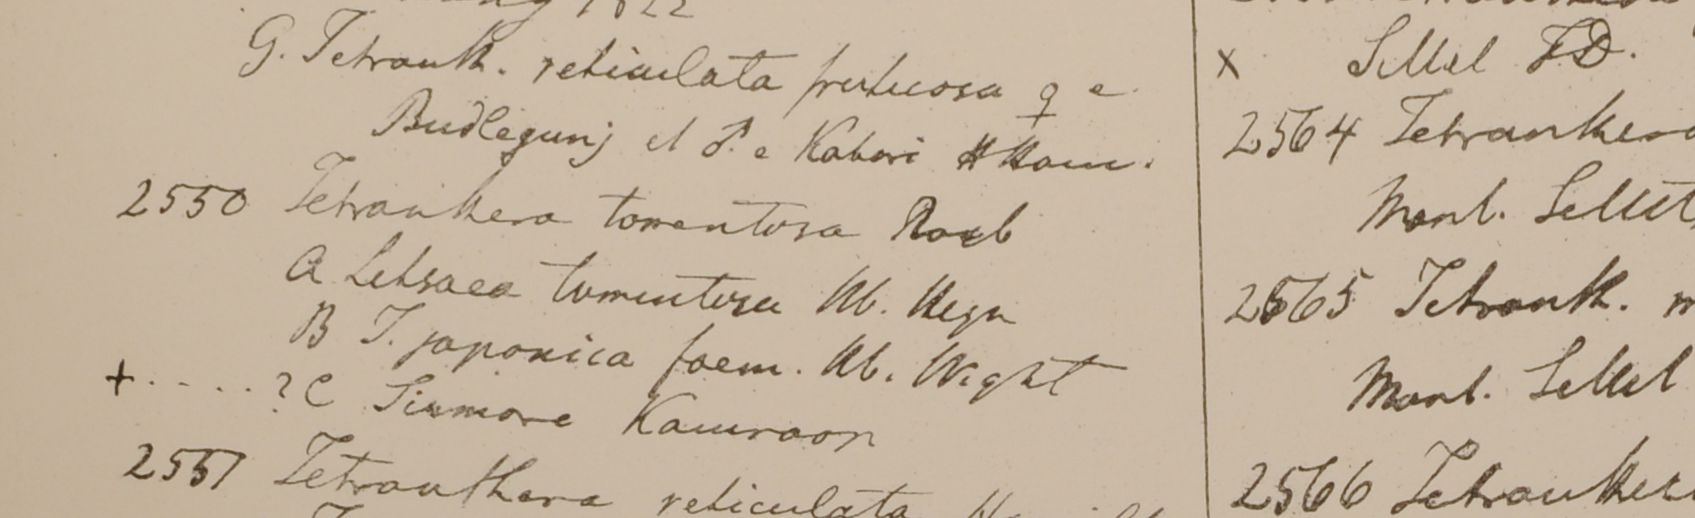 1822
G. Tetranth. reticulata fruticosa ♀ e
Budlegunj et ♂ e Kabori HHam.
2550 Tetranthera tomentosa Roxb
A Letsaea tomentosa Hb. Heyn
B T. japonica foem. Hb. Wight
+ . . . . . ? C Sirmore Kamraon
2551 Tetranthera reticulata
x Sillet FD.
2564 Tetranthera
Mont. Sillet
2565 Tetranth.
Mont. Sillet
2566 Tetranthera